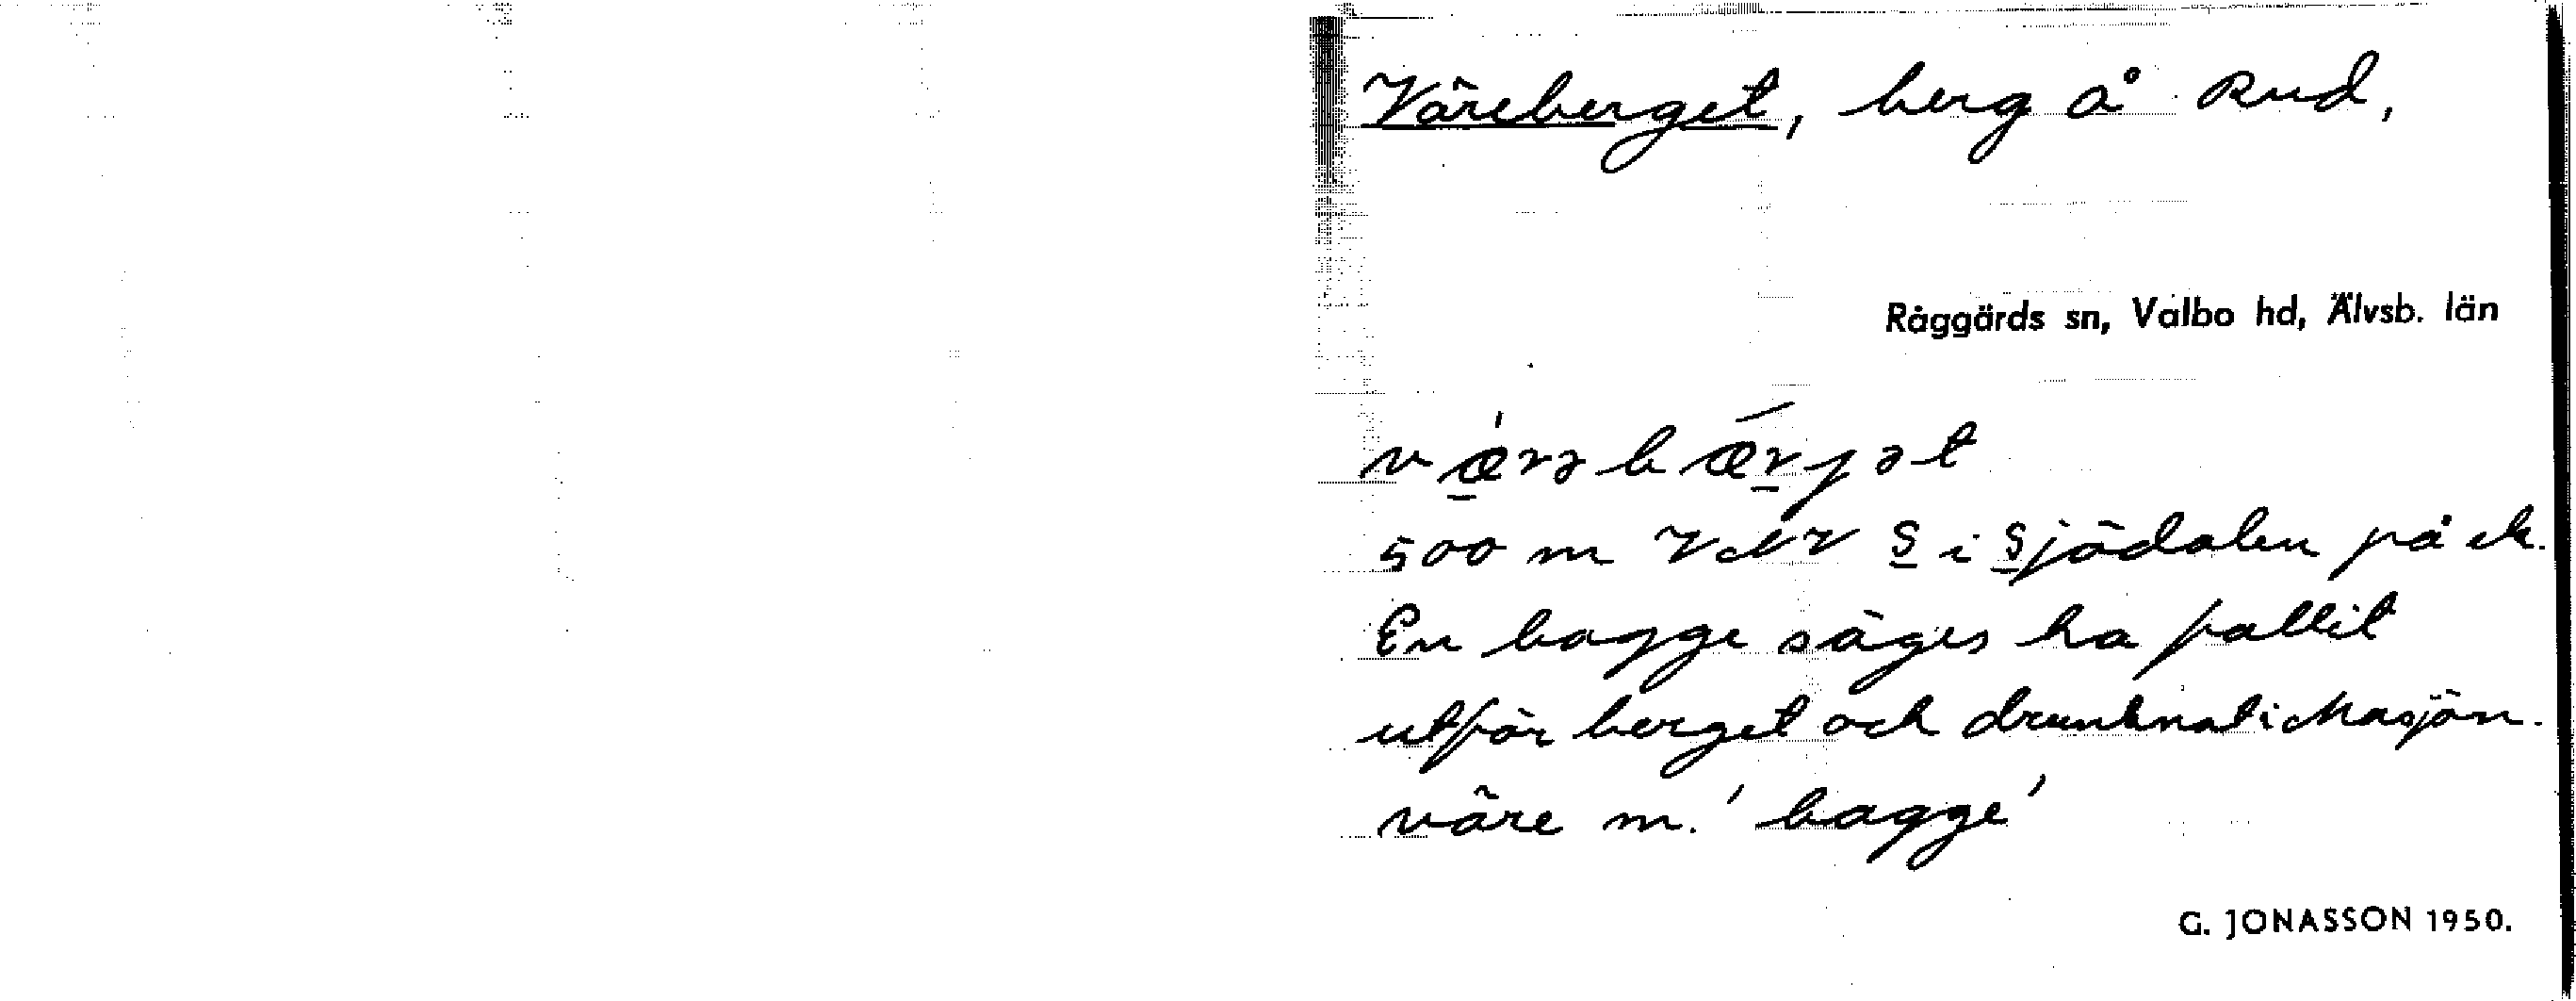 Väreberget, berg å Rud,
Råggärds sn, Valbo hd, Älvsb. län
værəbærjət
500 m VNV S i Sjödalen på ek.
En bagge säges ha fallit
utför berget och drunknat i Nasjön.
väre m. 'bagge'
G. JONASSON 1950.